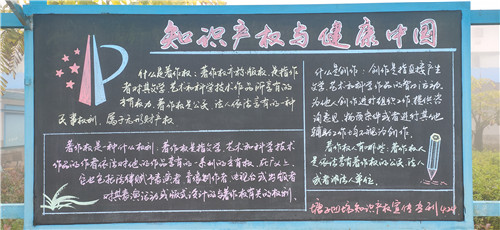 知识产权与健康中国
什么是著作权：著作权亦称版权，是指作
者对其文学、艺术和科学技术作品所享有的
专有权力。著作权是公民、法人依法享有的一种
民事权利，属于无形财产权
著作权是一种什么权利：著作权是指文学、艺术和科学技术
作品的作者依法对他的作品享有的一系列的专有权，在广义上，
它也包括法律赋予表演者、音像制作者、电视台或出版者
对其表演活动或版式设计的与著作权有关的权利。
什么是创作：创作是指直接产生
文学、艺术和科学作品的智力活动，
为他人创作进行组织工作，提供咨
询意见、物质条件或者进行其他
辅助工作，均不视为创作。
著作权人有哪些：著作权人
是依法享有著作权的公民、法人
或者非法人单位。
知识产权宣传专刊 4.24